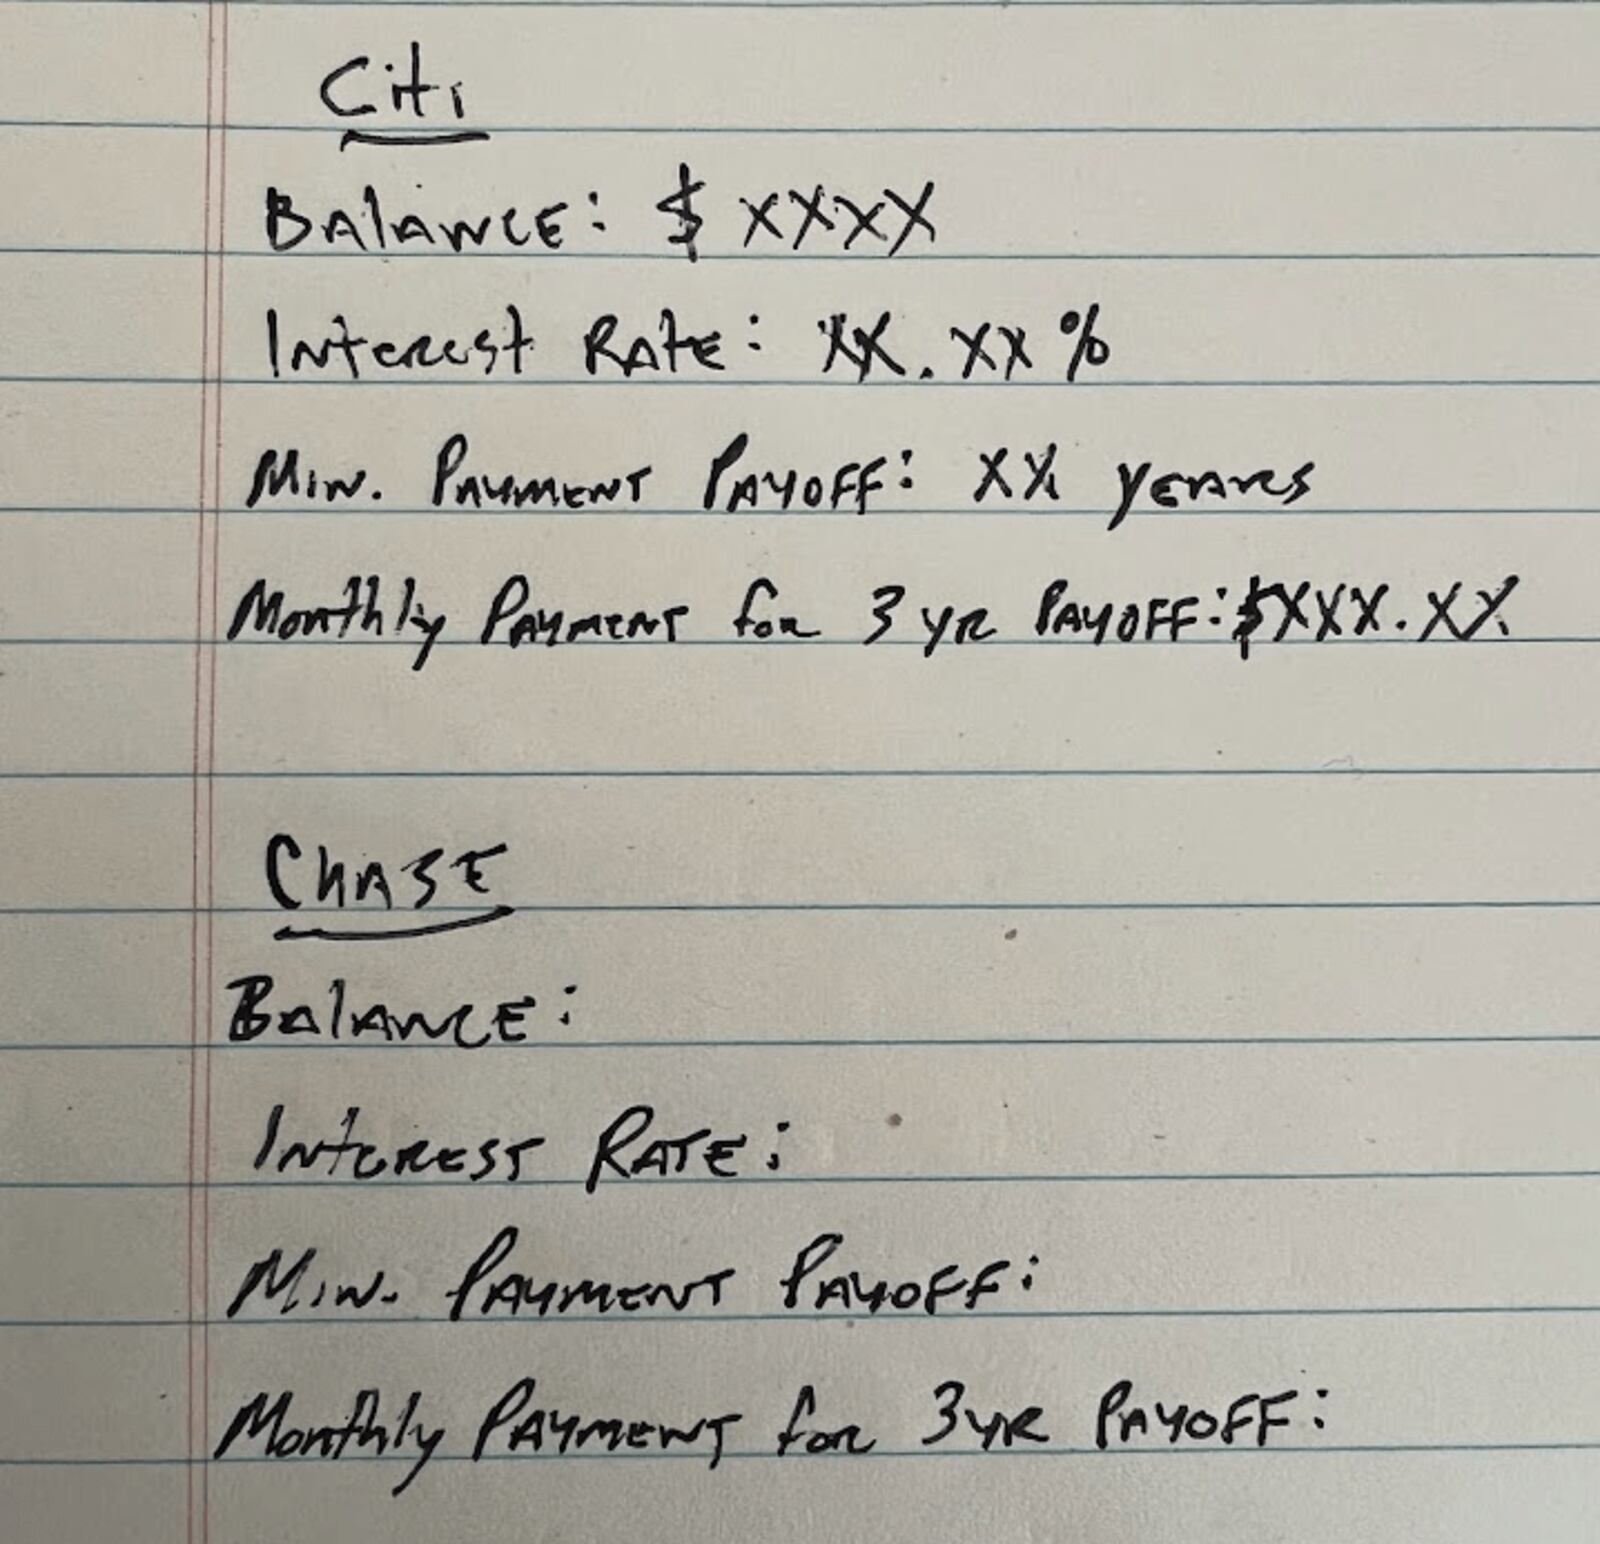 Citi
Balance: $ XXXX
Interest Rate: XX.XX%
Min. Payment Payoff: XX years
Monthly Payment for 3 yr Payoff: $XXX.XX
Chase
Balance:
Interest Rate:
Min. Payment Payoff:
Monthly Payment for 3 yr Payoff: